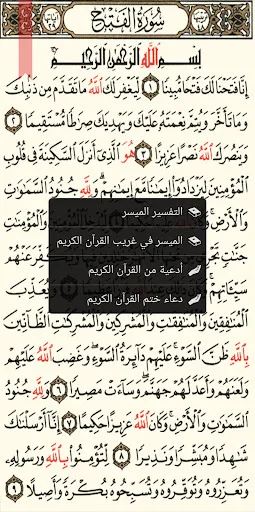 سُورَةُ الفَتْحِ
بِسْمِ اللَّهِ الرَّحْمَٰنِ الرَّحِيمِ
إِنَّا فَتَحْنَا لَكَ فَتْحًا مُّبِينًا ١ لِّيَغْفِرَ لَكَ اللَّهُ مَا تَقَدَّمَ مِن ذَنۢبِكَ
وَمَا تَأَخَّرَ وَيُتِمَّ نِعْمَتَهُۥ عَلَيْكَ وَيَهْدِيَكَ صِرَٰطًا مُّسْتَقِيمًا ٢
وَيَنصُرَكَ اللَّهُ نَصْرًا عَزِيزًا ٣ هُوَ الَّذِىٓ أَنزَلَ السَّكِينَةَ فِى قُلُوبِ
الْمُؤْمِنِينَ لِيَزْدَادُوٓا۟ إِيمَٰنًا مَّعَ إِيمَٰنِهِمْ ۗ وَلِلَّهِ جُنُودُ السَّمَٰوَٰتِ
وَالْأَرْضِ ۚ وَكَانَ
وَالْمُؤْمِنَٰتِ
جَنَّٰتٍ
وَيُكَفِّرَ عَنْهُمْ
سَيِّـَٔاتِهِمْ ۚ
وَيُعَذِّبَ
التفسير الميسر
الميسر في غريب القرآن الكريم
أدعية من القرآن الكريم
دعاء ختم القرآن الكريم
الْمُنَٰفِقِينَ وَالْمُنَٰفِقَٰتِ وَالْمُشْرِكِينَ وَالْمُشْرِكَٰتِ الظَّآنِّينَ
بِاللَّهِ ظَنَّ السَّوْءِ ۚ عَلَيْهِمْ دَآئِرَةُ السَّوْءِ ۖ وَغَضِبَ اللَّهُ عَلَيْهِمْ
وَلَعَنَهُمْ وَأَعَدَّ لَهُمْ جَهَنَّمَ ۖ وَسَآءَتْ مَصِيرًا ٦ وَلِلَّهِ جُنُودُ
السَّمَٰوَٰتِ وَالْأَرْضِ ۚ وَكَانَ اللَّهُ عَزِيزًا حَكِيمًا ٧ إِنَّآ أَرْسَلْنَٰكَ
شَٰهِدًا وَمُبَشِّرًا وَنَذِيرًا ٨ لِّتُؤْمِنُوا۟ بِاللَّهِ وَرَسُولِهِۦ
وَتُعَزِّرُوهُ وَتُوَقِّرُوهُ وَتُسَبِّحُوهُ بُكْرَةً وَأَصِيلًا ٩